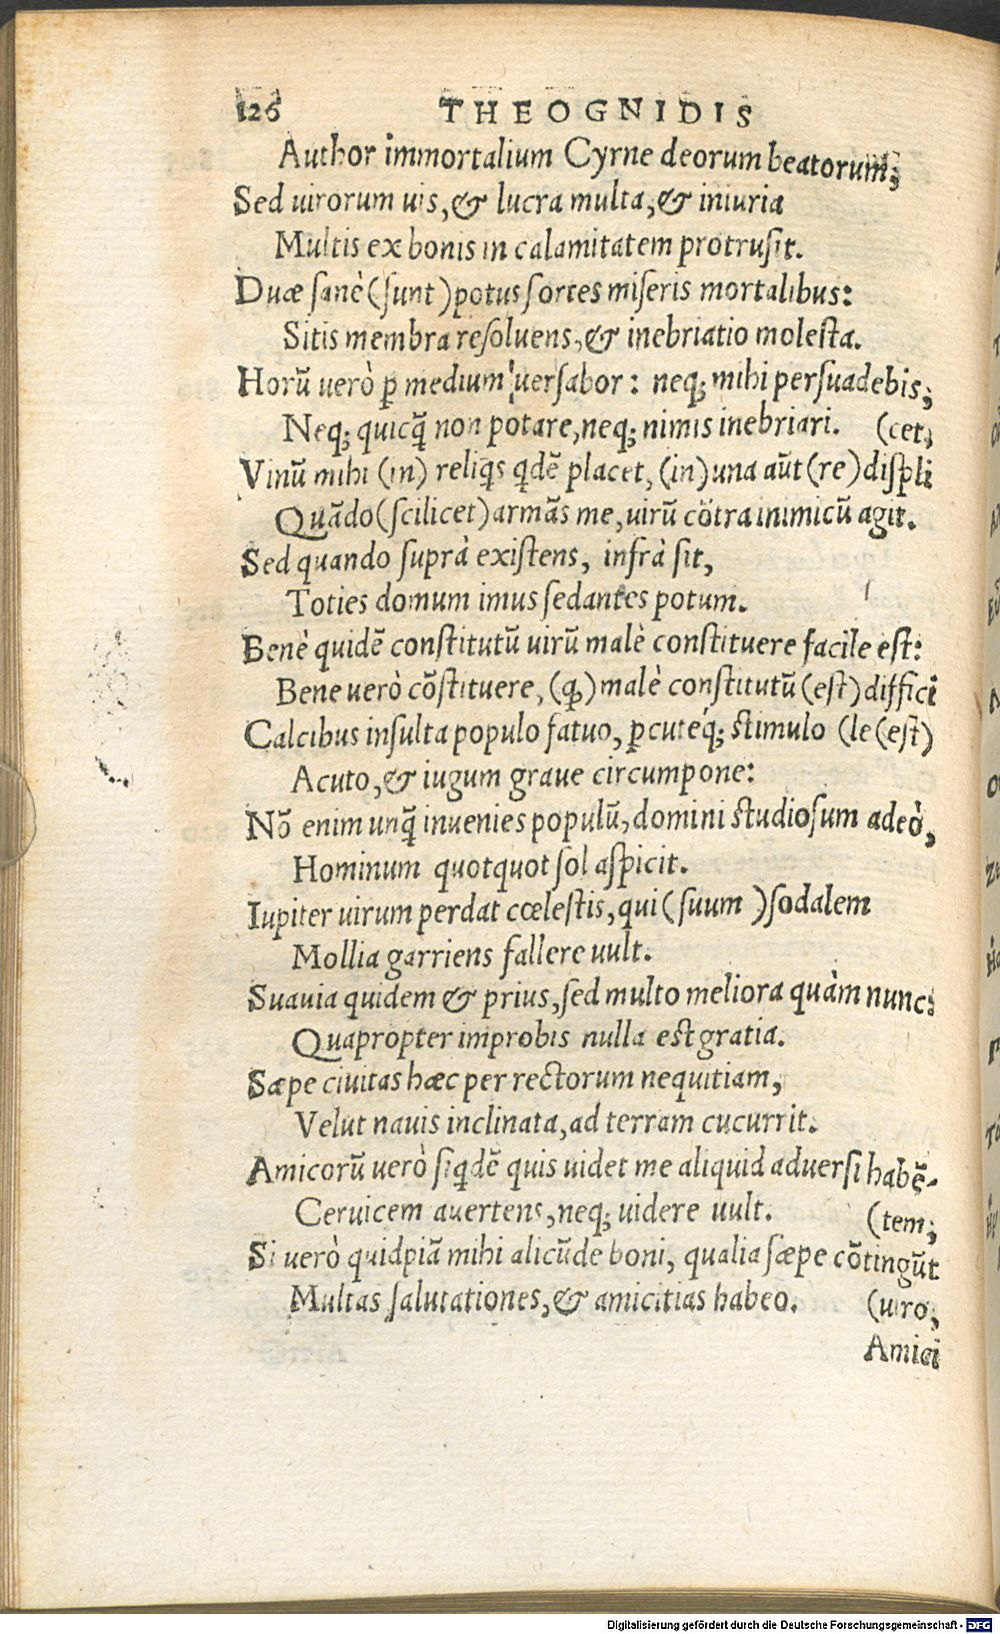 126 THEOGNIDIS
Author immortalium Cyrne deorum beatorum;
Sed uirorum uis, & lucra multa, & iniuria
Multis ex bonis in calamitatem protrusit.
Duæ sanè (sunt) potus sortes miseris mortalibus:
Sitis membra resoluens, & inebriatio molesta.
Horũ uerò ꝑ medium uersabor: neq; mihi persuadebis,
Neq; quicq̃ non potare, neq; nimis inebriari. (cet,
Vinũ mihi (in) reliq̃s qdẽ placet, (in) una aũt (re) displi
Quãdo (scilicet) armãs me, uirũ cõtra inimicũ agit.
Sed quando suprà existens, infrà sit,
Toties domum imus sedantes potum.
Benè quidẽ constitutũ uirũ malè constituere facile est:
Bene uerò cõstituere, (ꝙ) malè constitutũ (est) diffici
Calcibus insulta populo fatuo, ꝑcuteq́; stimulo (le (est)
Acuto, & iugum graue circumpone:
Nõ enim unq̃ inuenies populũ, domini studiosum adeò,
Hominum quotquot sol aspicit.
Iupiter uirum perdat cœlestis, qui (suum) sodalem
Mollia garriens fallere uult.
Suauia quidem & prius, sed multo meliora quàm nunc:
Quapropter improbis nulla est gratia.
Sæpe ciuitas hæc per rectorum nequitiam,
Velut nauis inclinata, ad terram cucurrit.
Amicorũ uerò siqdẽ quis uidet me aliquid aduersi habẽ-
Ceruicem auertens, neq; uidere uult. (tem;
Si uerò quidpiã mihi alicũde boni, qualia sæpe cõtingũt
Multas salutationes, & amicitias habeo. (uiro,
Amici
Digitalisierung gefördert durch die Deutsche Forschungsgemeinschaft - DFG